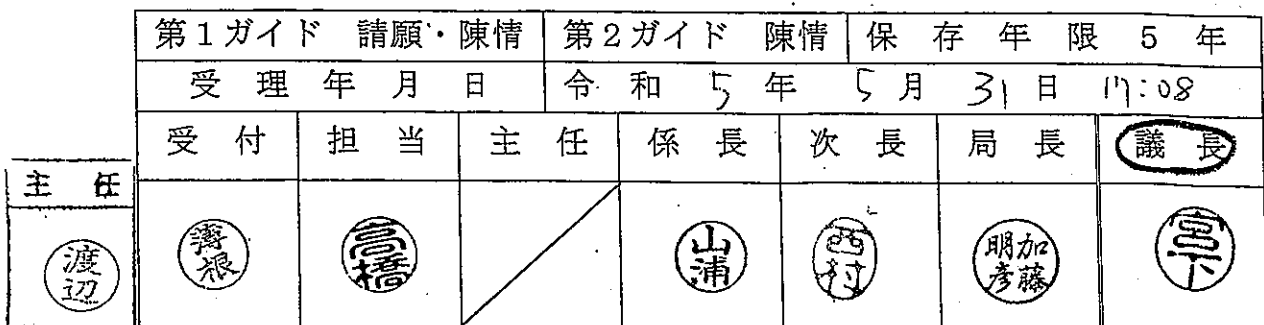 第1ガイド 請願・陳情 第2ガイド 陳情 保存年限5年
受理年月日 令和5年5月31日 17:08
受付 担当 主任 係長 次長 局長 議長
主任
渡辺 薄根 高橋 山浦 西村 加藤明彦 宮下